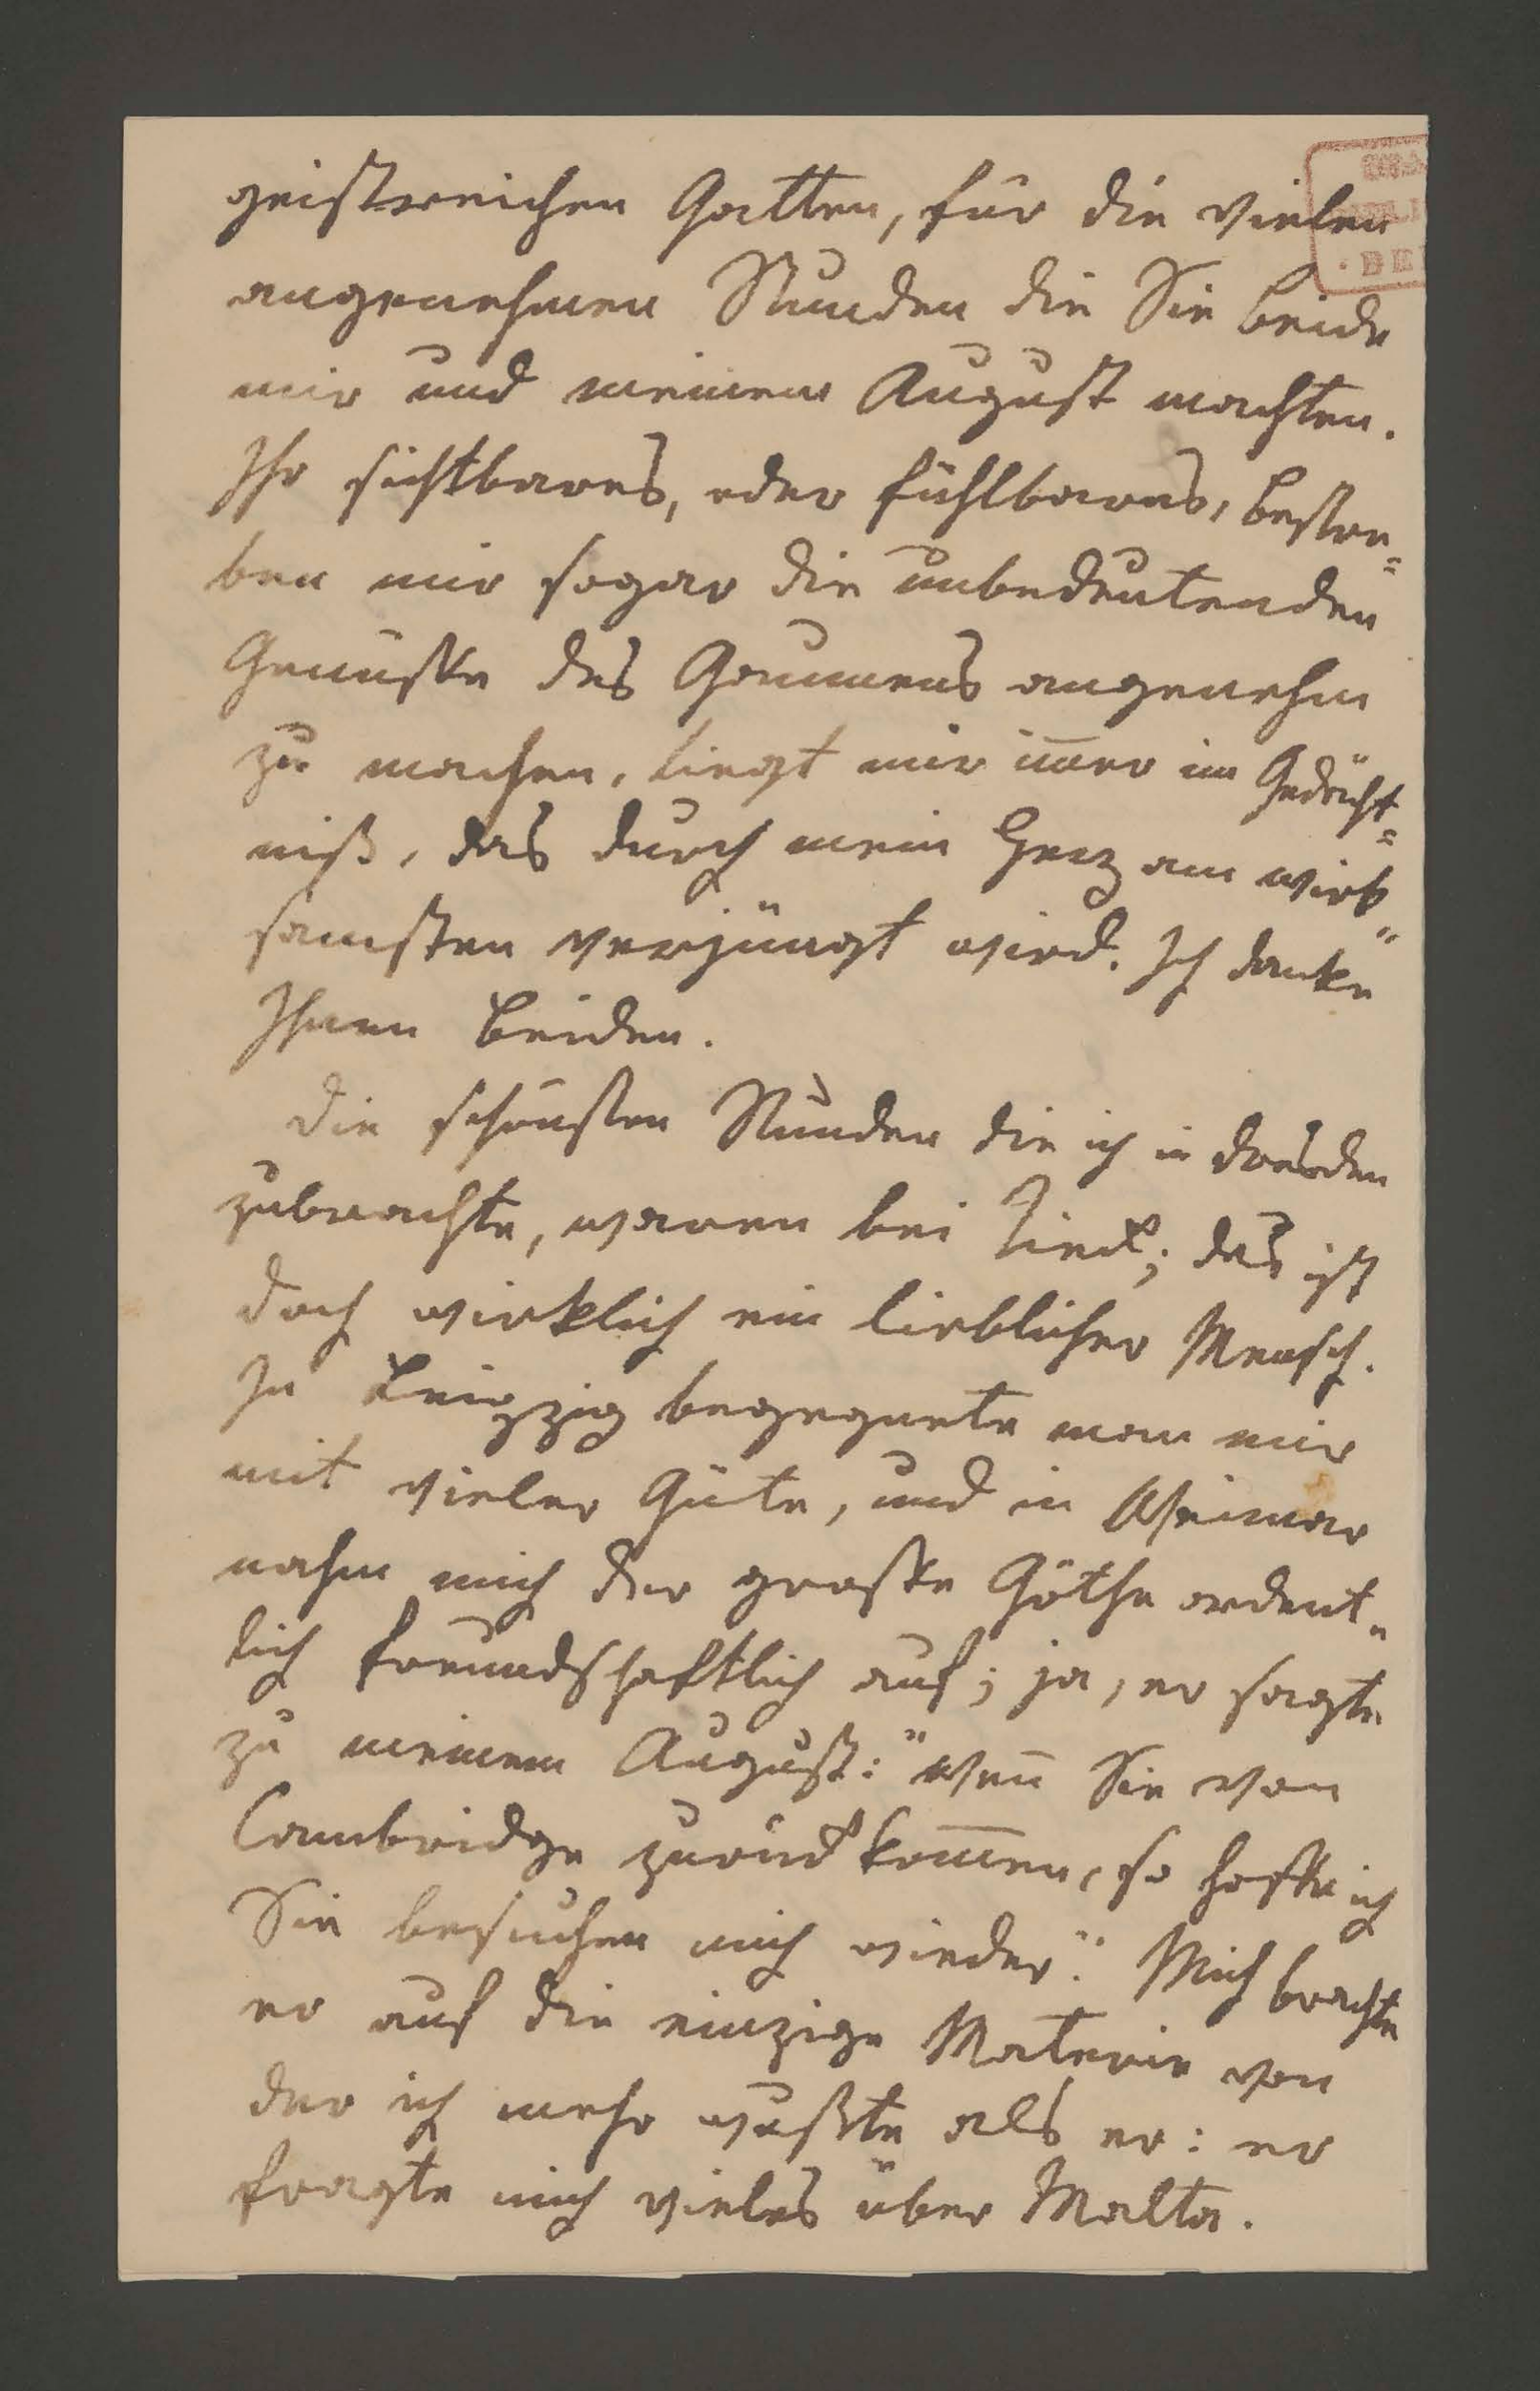 geistreichen Gatten, für die vielen
angenehmen Stunden die Sie beide
mir und meinem August machten.
Ihr sichtbares, oder fühlbares, Bestre=
ben mir sogar die unbedeutenden
Genüsse des Gaumens angenehm
zu machen, liegt mir im̅er im Gedächt=
niß, das durch mein Herz am wirk„
samsten verjüngt wird. Ich danke
Ihnen Beiden.
Die schönsten Stunden die ich in Dresden
zubrachte, waren bei Tieck; das ist
doch wirklich ein lieblicher Mensch.
In Leipzig begegnete man mir
mit vieler Güte, und in Weimar
nahm mich der große Göthe ordent„
lich freundschaftlich auf; ja, er sagte
zu meinem August: "wen̅ Sie von
Cambridge zurück kom̅en, so hoffe ich
Sie besuchen mich wieder". Mich brachte
er auf die einzige Materie von
der ich mehr wußte als er: er
fragte mich vieles über Malta.